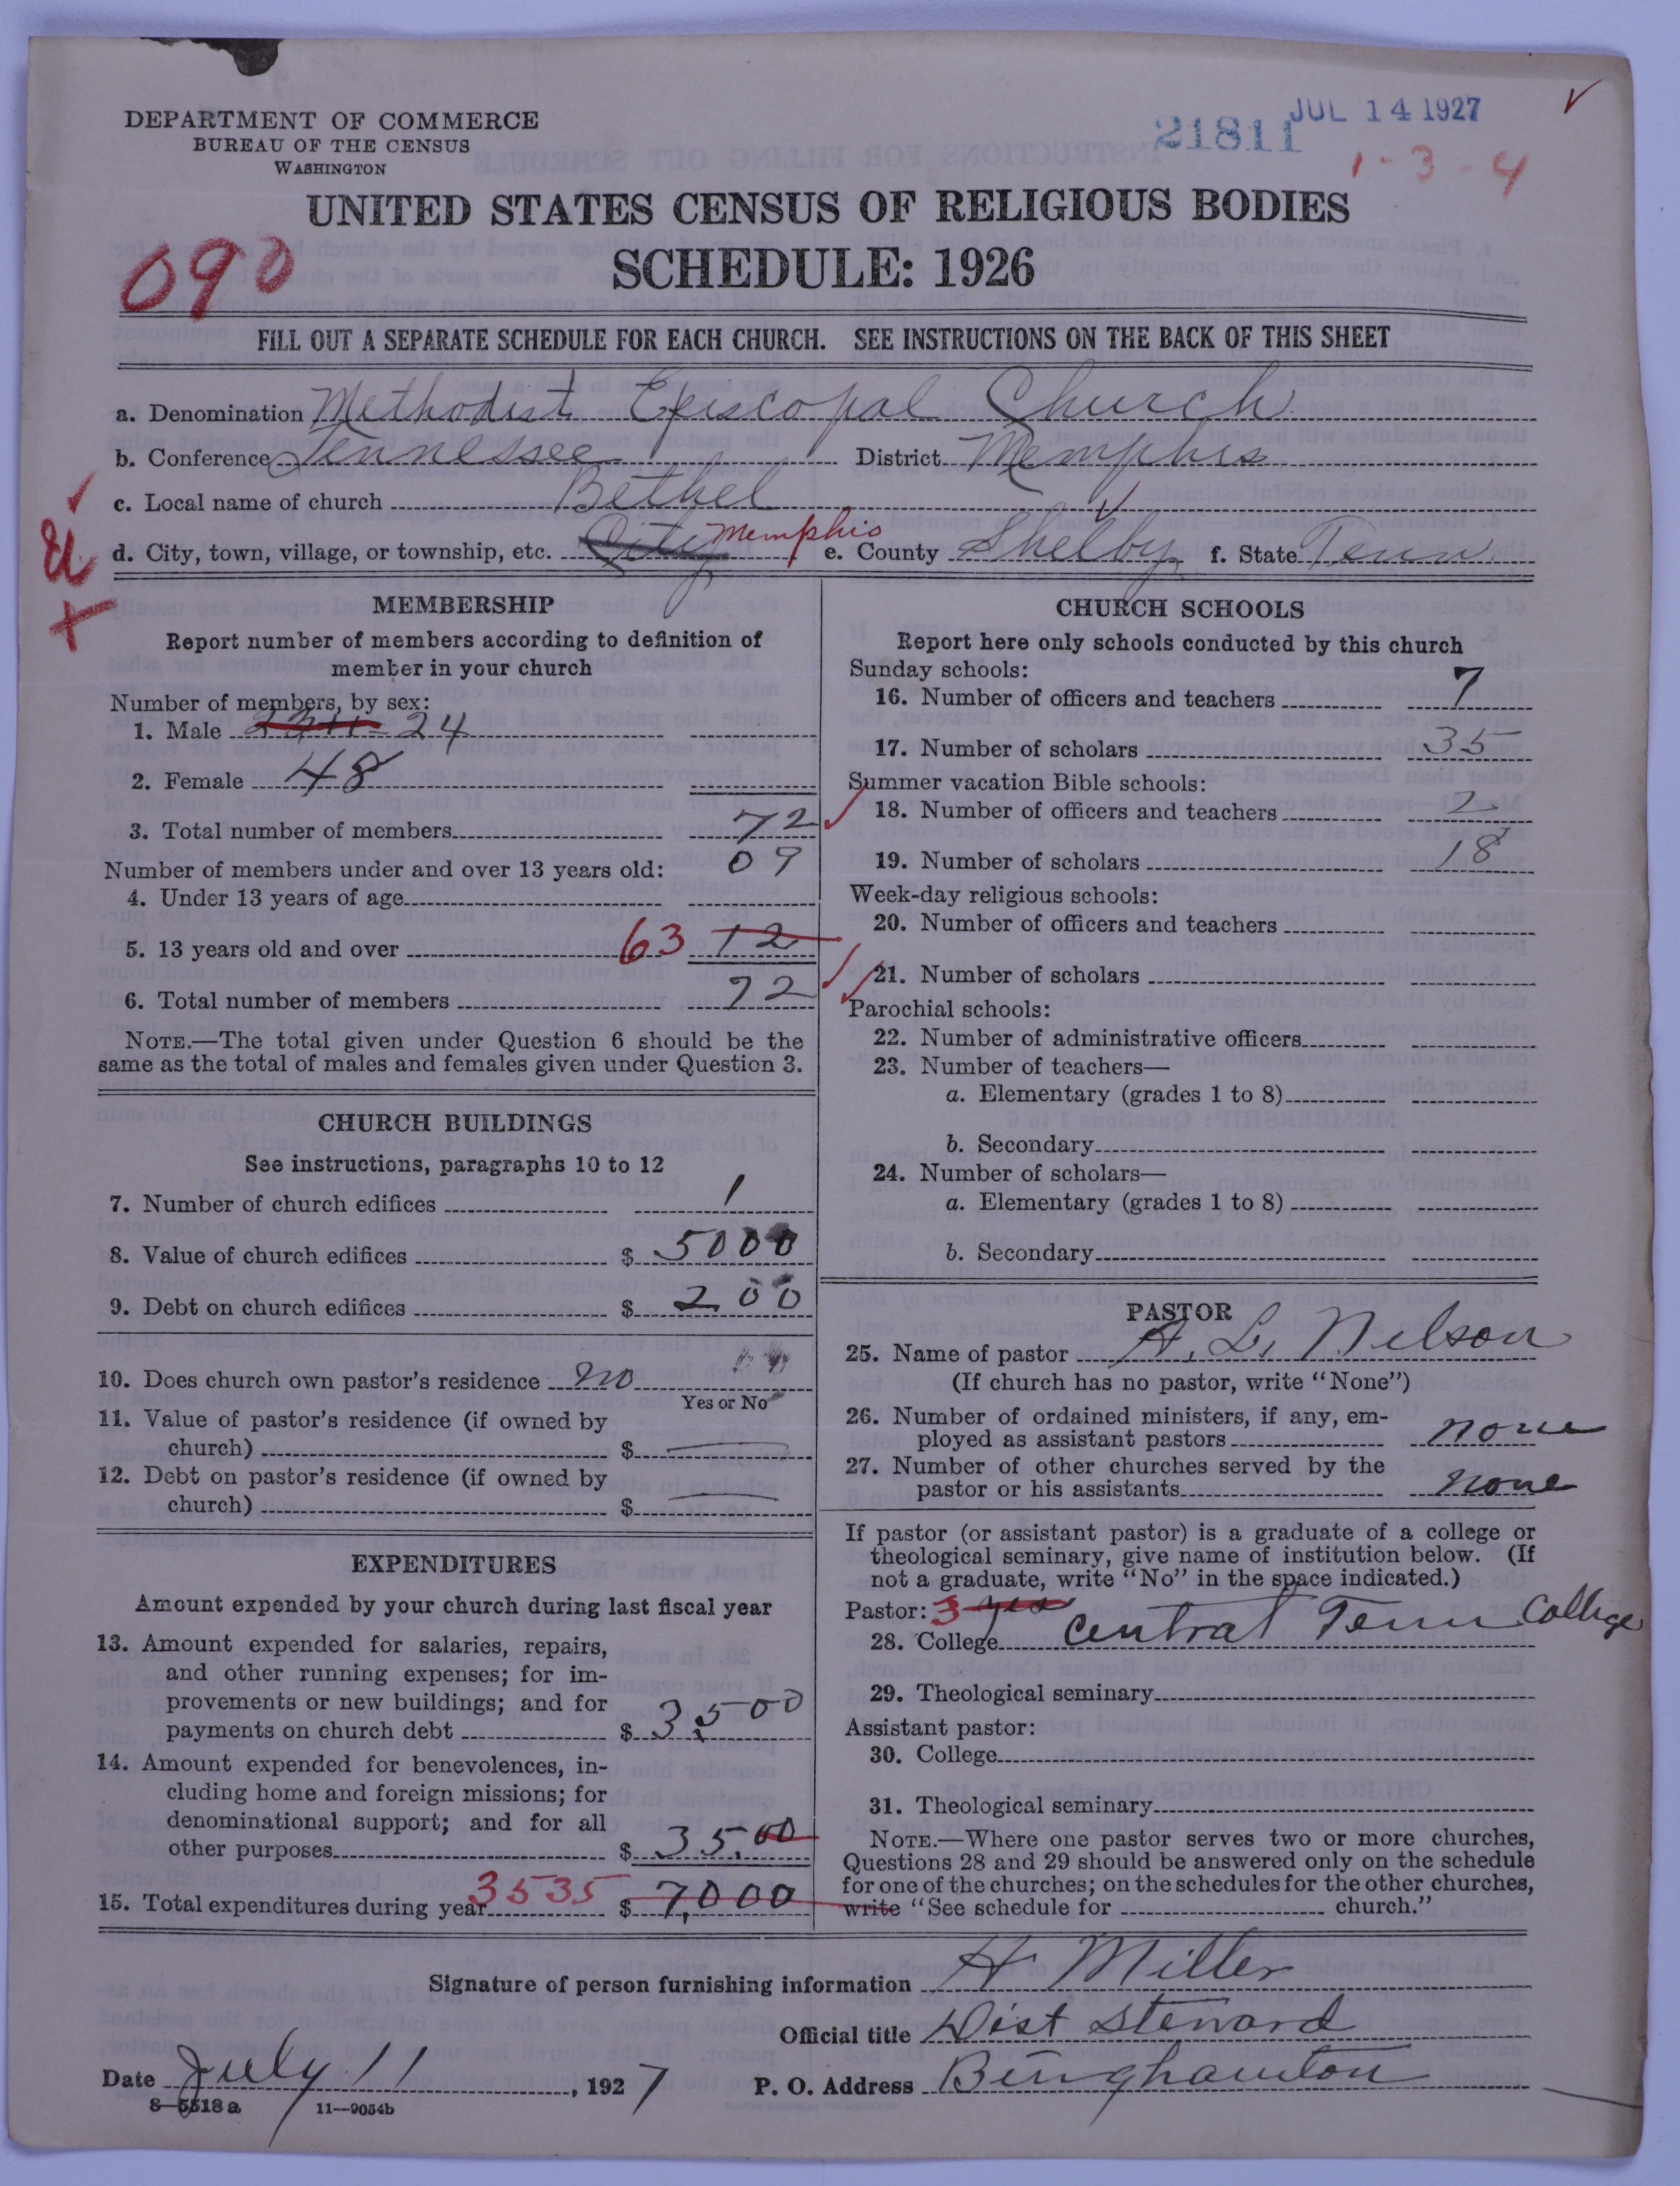 DEPARTMENT OF COMMERCE
BUREAU OF THE CENSUS
WASHINGTON
21811 JUL 14 1927
1-3-4
UNITED STATES CENSUS OF RELIGIOUS BODIES
SCHEDULE: 1926
090
FILL OUT A SEPARATE SCHEDULE FOR EACH CHURCH. SEE INSTRUCTIONS ON THE BACK OF THIS SHEET
a. Denomination Methodist Episcopal Church
b. Conference Tennessee District Memphis
c. Local name of church Bethel
d. City, town, village, or township, etc. City Memphis e. County Shelby f. State Tenn
MEMBERSHIP
Report number of members according to definition of
member in your church
Number of members, by sex:
1. Male 24
2. Female 48
3. Total number of members 72
Number of members under and over 13 years old: 09
4. Under 13 years of age
5. 13 years old and over 63 12
6. Total number of members 72
NOTE.—The total given under Question 6 should be the
same as the total of males and females given under Question 3.
CHURCH BUILDINGS
See instructions, paragraphs 10 to 12
7. Number of church edifices 1
8. Value of church edifices $ 5000
9. Debt on church edifices $ 200
10. Does church own pastor's residence no
Yes or No
11. Value of pastor's residence (if owned by
church) $
12. Debt on pastor's residence (if owned by
church) $
EXPENDITURES
Amount expended by your church during last fiscal year
13. Amount expended for salaries, repairs,
and other running expenses; for im-
provements or new buildings; and for
payments on church debt $ 3500
14. Amount expended for benevolences, in-
cluding home and foreign missions; for
denominational support; and for all
other purposes $ 35.00
15. Total expenditures during year 3535 $ 7,000
CHURCH SCHOOLS
Report here only schools conducted by this church
Sunday schools:
16. Number of officers and teachers 7
17. Number of scholars 35
Summer vacation Bible schools:
18. Number of officers and teachers 2
19. Number of scholars 18
Week-day religious schools:
20. Number of officers and teachers
21. Number of scholars
Parochial schools:
22. Number of administrative officers
23. Number of teachers—
a. Elementary (grades 1 to 8)
b. Secondary
24. Number of scholars—
a. Elementary (grades 1 to 8)
b. Secondary
PASTOR
25. Name of pastor A. L. Nelson
(If church has no pastor, write "None")
26. Number of ordained ministers, if any, em-
ployed as assistant pastors none
27. Number of other churches served by the
pastor or his assistants none
If pastor (or assistant pastor) is a graduate of a college or
theological seminary, give name of institution below. (If
not a graduate, write "No" in the space indicated.)
Pastor: 3 yes
28. College Central Tenn College
29. Theological seminary
Assistant pastor:
30. College
31. Theological seminary
NOTE.—Where one pastor serves two or more churches,
Questions 28 and 29 should be answered only on the schedule
for one of the churches; on the schedules for the other churches,
write "See schedule for church."
Signature of person furnishing information H Miller
Official title Dist Steward
Date July 11, 1927 P. O. Address Binghamton
8-5518 a 11-9054b